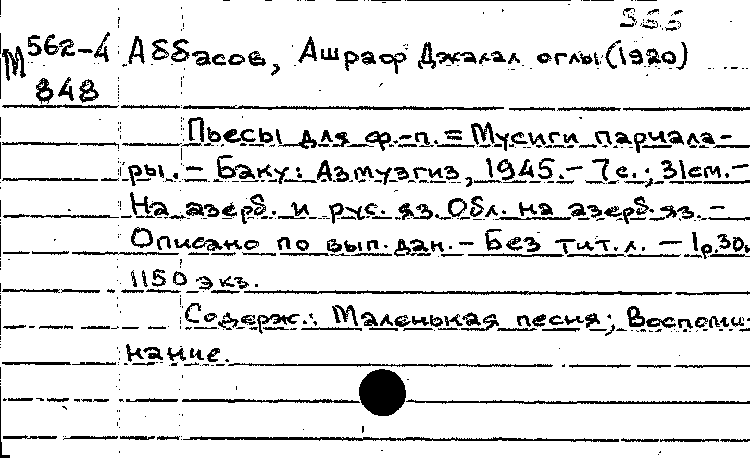 366
М 562-4 Аббасов, Ашраф Джалал оглы (1920)
848
Пьесы для ф.-п. = Мусиги парчала-
ры. - Баку: Азмузгиз, 1945. - 7 с.; 31 см. -
На азерб. и рус. яз. Обл. на азерб. яз. -
Описано по вып. дан. - Без тит. л. - 1р.30.
1150 экз.
Содерж.: Маленькая песня; Воспоми-
нание.